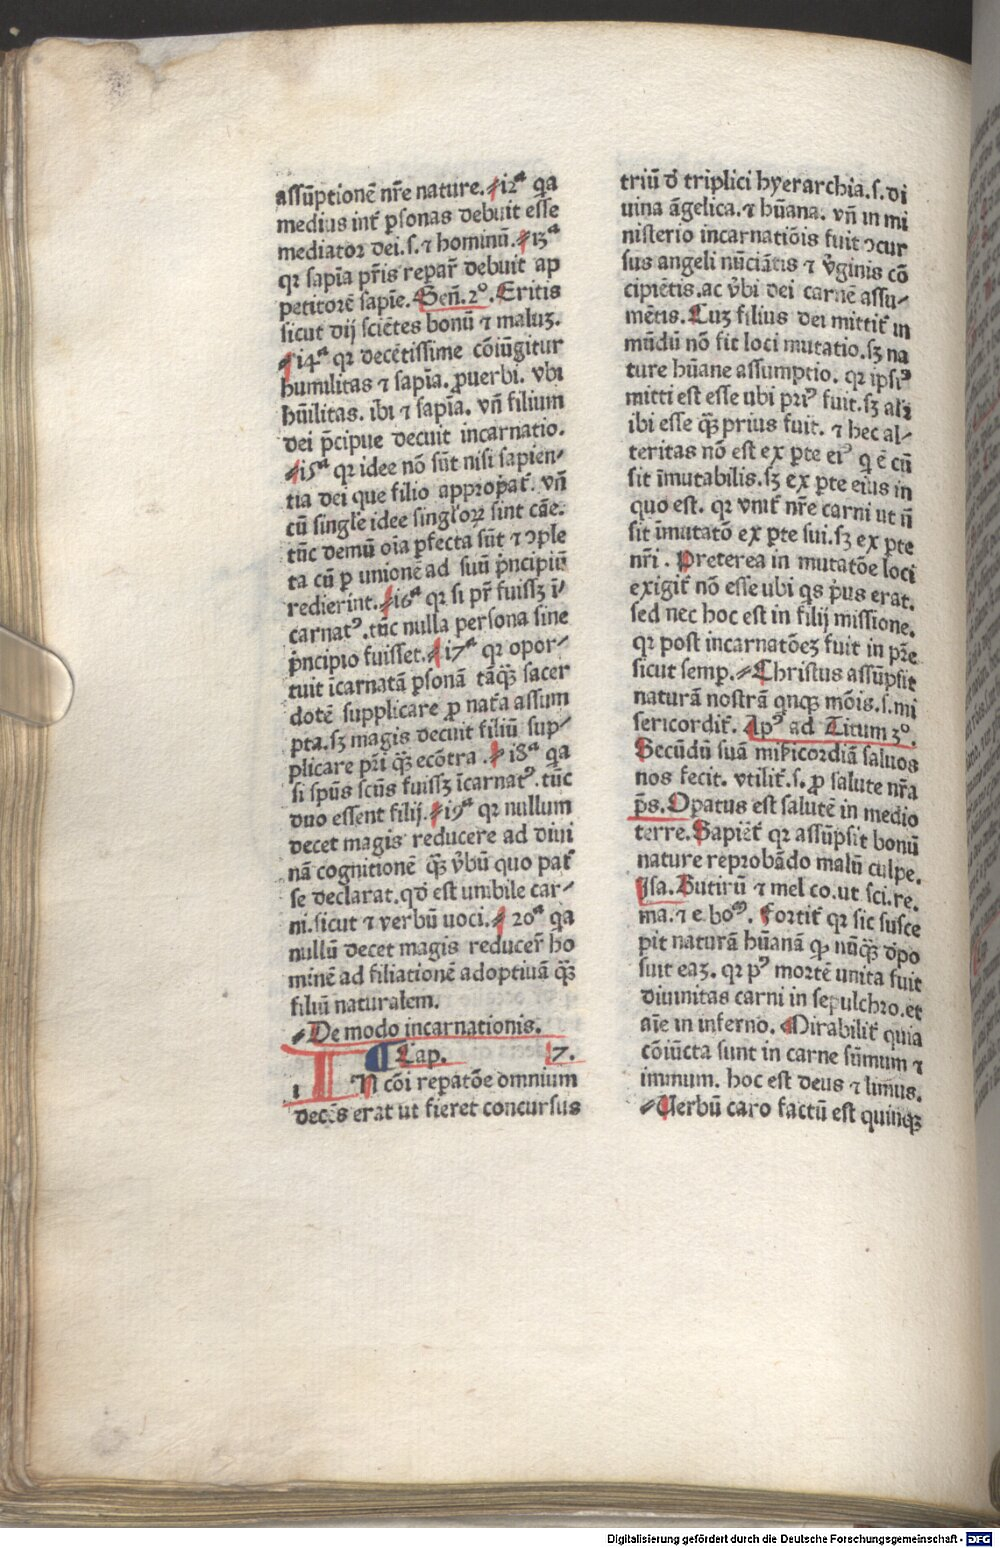 assūptionē nr̄e nature. ⸗12ª qa
medius int̄ ꝑsonas debuit esse
mediator dei.s.⁊ hominū. ⸗13ª
qr sapīa pr̄is repar̄ debuit ap
petitorē sapīe. Gen̄.2°. Eritis
sicut dij sciētes bonū ⁊ maluꝫ.
⸗14ª qr decētissime cōiūgitur
humilitas ⁊ sapīa. ꝓuerbi. vbi
hūilitas. ibi ⁊ sapīa. vn̄ filium
dei p̄cipue decuit incarnatio.
⸗15ª qr idee nō sūt nisi sapien⸗
tia dei que filio appropat̄. vn̄
cū singl̄e idee singl̄oꝝ sint cāe.
tūc demū oīa ꝑfecta sūt ⁊ ꝯple
ta cū ꝑ unionē ad suū p̄ncipiū
redierint. ⸗16ª qr si pr̄ fuissꝫ ī⸗
carnatꝰ. tūc nulla persona sine
p̄ncipio fuisset. ⸗17ª qr opor⸗
tuit īcarnatā ꝑsonā tāqꝫ̄ sacer
dotē supplicare ꝓ nat̄a assum
pta. sꝫ magis decuit filiū sup⸗
plicare pr̄i qꝫ̄ ecōtra. ⸗18ª qa
si spūs scūs fuissꝫ īcarnatꝰ. tūc
duo essent filij. ⸗19ª qr nullum
decet magis reducere ad diui
nā cognitionē qꝫ̄ v̄bū quo pat̄
se declarat. qd̄ est unibile car⸗
ni. sicut ⁊ verbū uoci. ⸗20ª qa
nullū decet magis reducer̄ ho
minē ad filiationē adoptiuā qꝫ̄
filiū naturalem.
⸗De modo incarnationis.
¶ Cap. 7.
IN cōi repatōe omnium
decēs erat ut fieret concursus
triū d̄ triplici hyerarchia.s.di
uina āgelica.⁊ hūana. vn̄ in mi
nisterio incarnatiōis fuit ꝯcur
sus angeli nūciātis ⁊ v̄ginis cō
cipiētis. ac v̄bi dei carnē assu⸗
mētis. Cuꝫ filius dei mittit̄ in
mūdū nō fit loci mutatio. sꝫ na
ture hūane assumptio. qr ipsiꝰ
mitti est esse ubi priꝰ fuit. sꝫ ali
ibi esse qꝫ̄ prius fuit. ⁊ hec al⸗
teritas nō est ex ꝑte eiꝰ q̄ ē cū
sit īmutabilis. sꝫ ex ꝑte eius in
quo est. qr vnit̄ nr̄e carni ut n̄
sit īmutatō ex ꝑte sui. sꝫ ex ꝑte
nr̄i. Preterea in mutatōe loci
exigit̄ nō esse ubi qs p̄us erat.
sed nec hoc est in filij missione.
qr post incarnatōeꝫ fuit in pr̄e
sicut semꝑ. ⸗Christus assūpsit
naturā nostrā qnqꝫ mōis.s.mi
sericordit̄. Apꝰ ad Titum 3°.
Secūdū suā mīsericordiā saluos
nos fecit. vtilit̄.s. ꝓ salute nr̄a
p̄s. Opatus est salutē in medio
terre. Sapiēt̄ qr assūpsit bonū
nature reprobādo malū culpe.
Isa. Butirū ⁊ mel co.ut sci.re.
ma.⁊ e.bo. Fortit̄ qr sic susce
pit naturā hūanā ꝙ nūqꝫ̄ d̄po
suit eaꝫ. qr pꝰ mortē unita fuit
diuinitas carni in sepulchro. et
aīe in inferno. Mirabilit̄ quia
cōiūcta sunt in carne sūmum ⁊
immum. hoc est deus ⁊ limus.
⸗Verbū caro factū est quinqꝫ̄
Digitalisierung gefördert durch die Deutsche Forschungsgemeinschaft - DFG